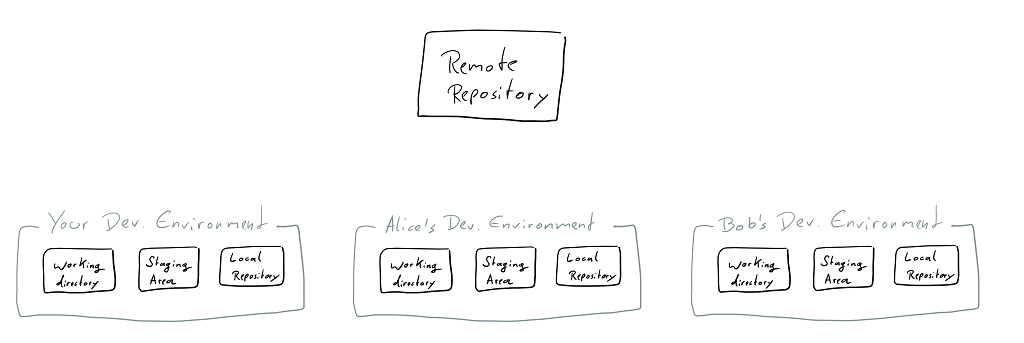 Remote
Repository
Your Dev. Environment
Working
directory
Staging
Area
Local
Repository
Alice's Dev. Environment
Working
directory
Staging
Area
Local
Repository
Bob's Dev. Environment
Working
directory
Staging
Area
Local
Repository